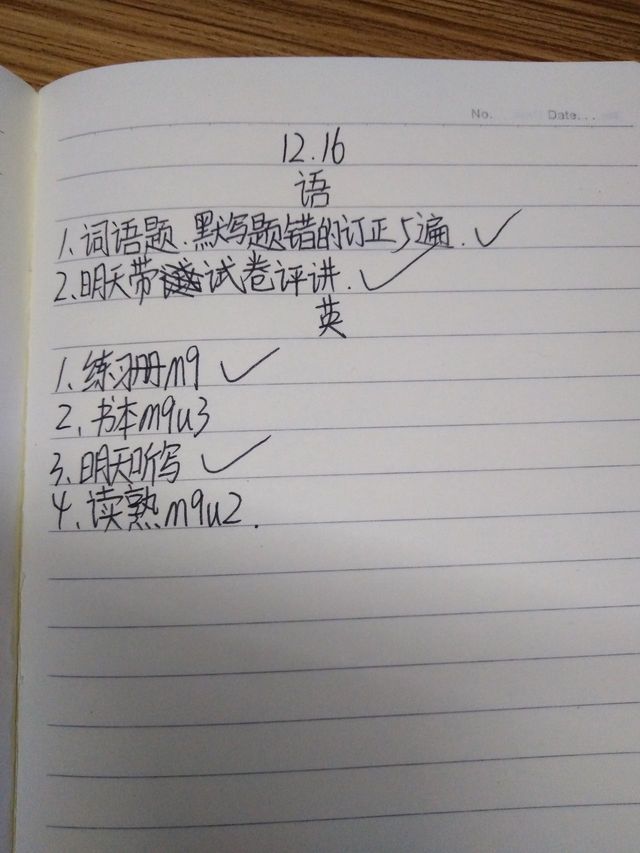 No. Date...
12.16
语
1.词语题.默写题错的订正5遍.✓
2.明天带试卷评讲.✓
英
1.练习册m9 ✓
2.书本m9u3
3.明天听写 ✓
4.读熟m9u2.